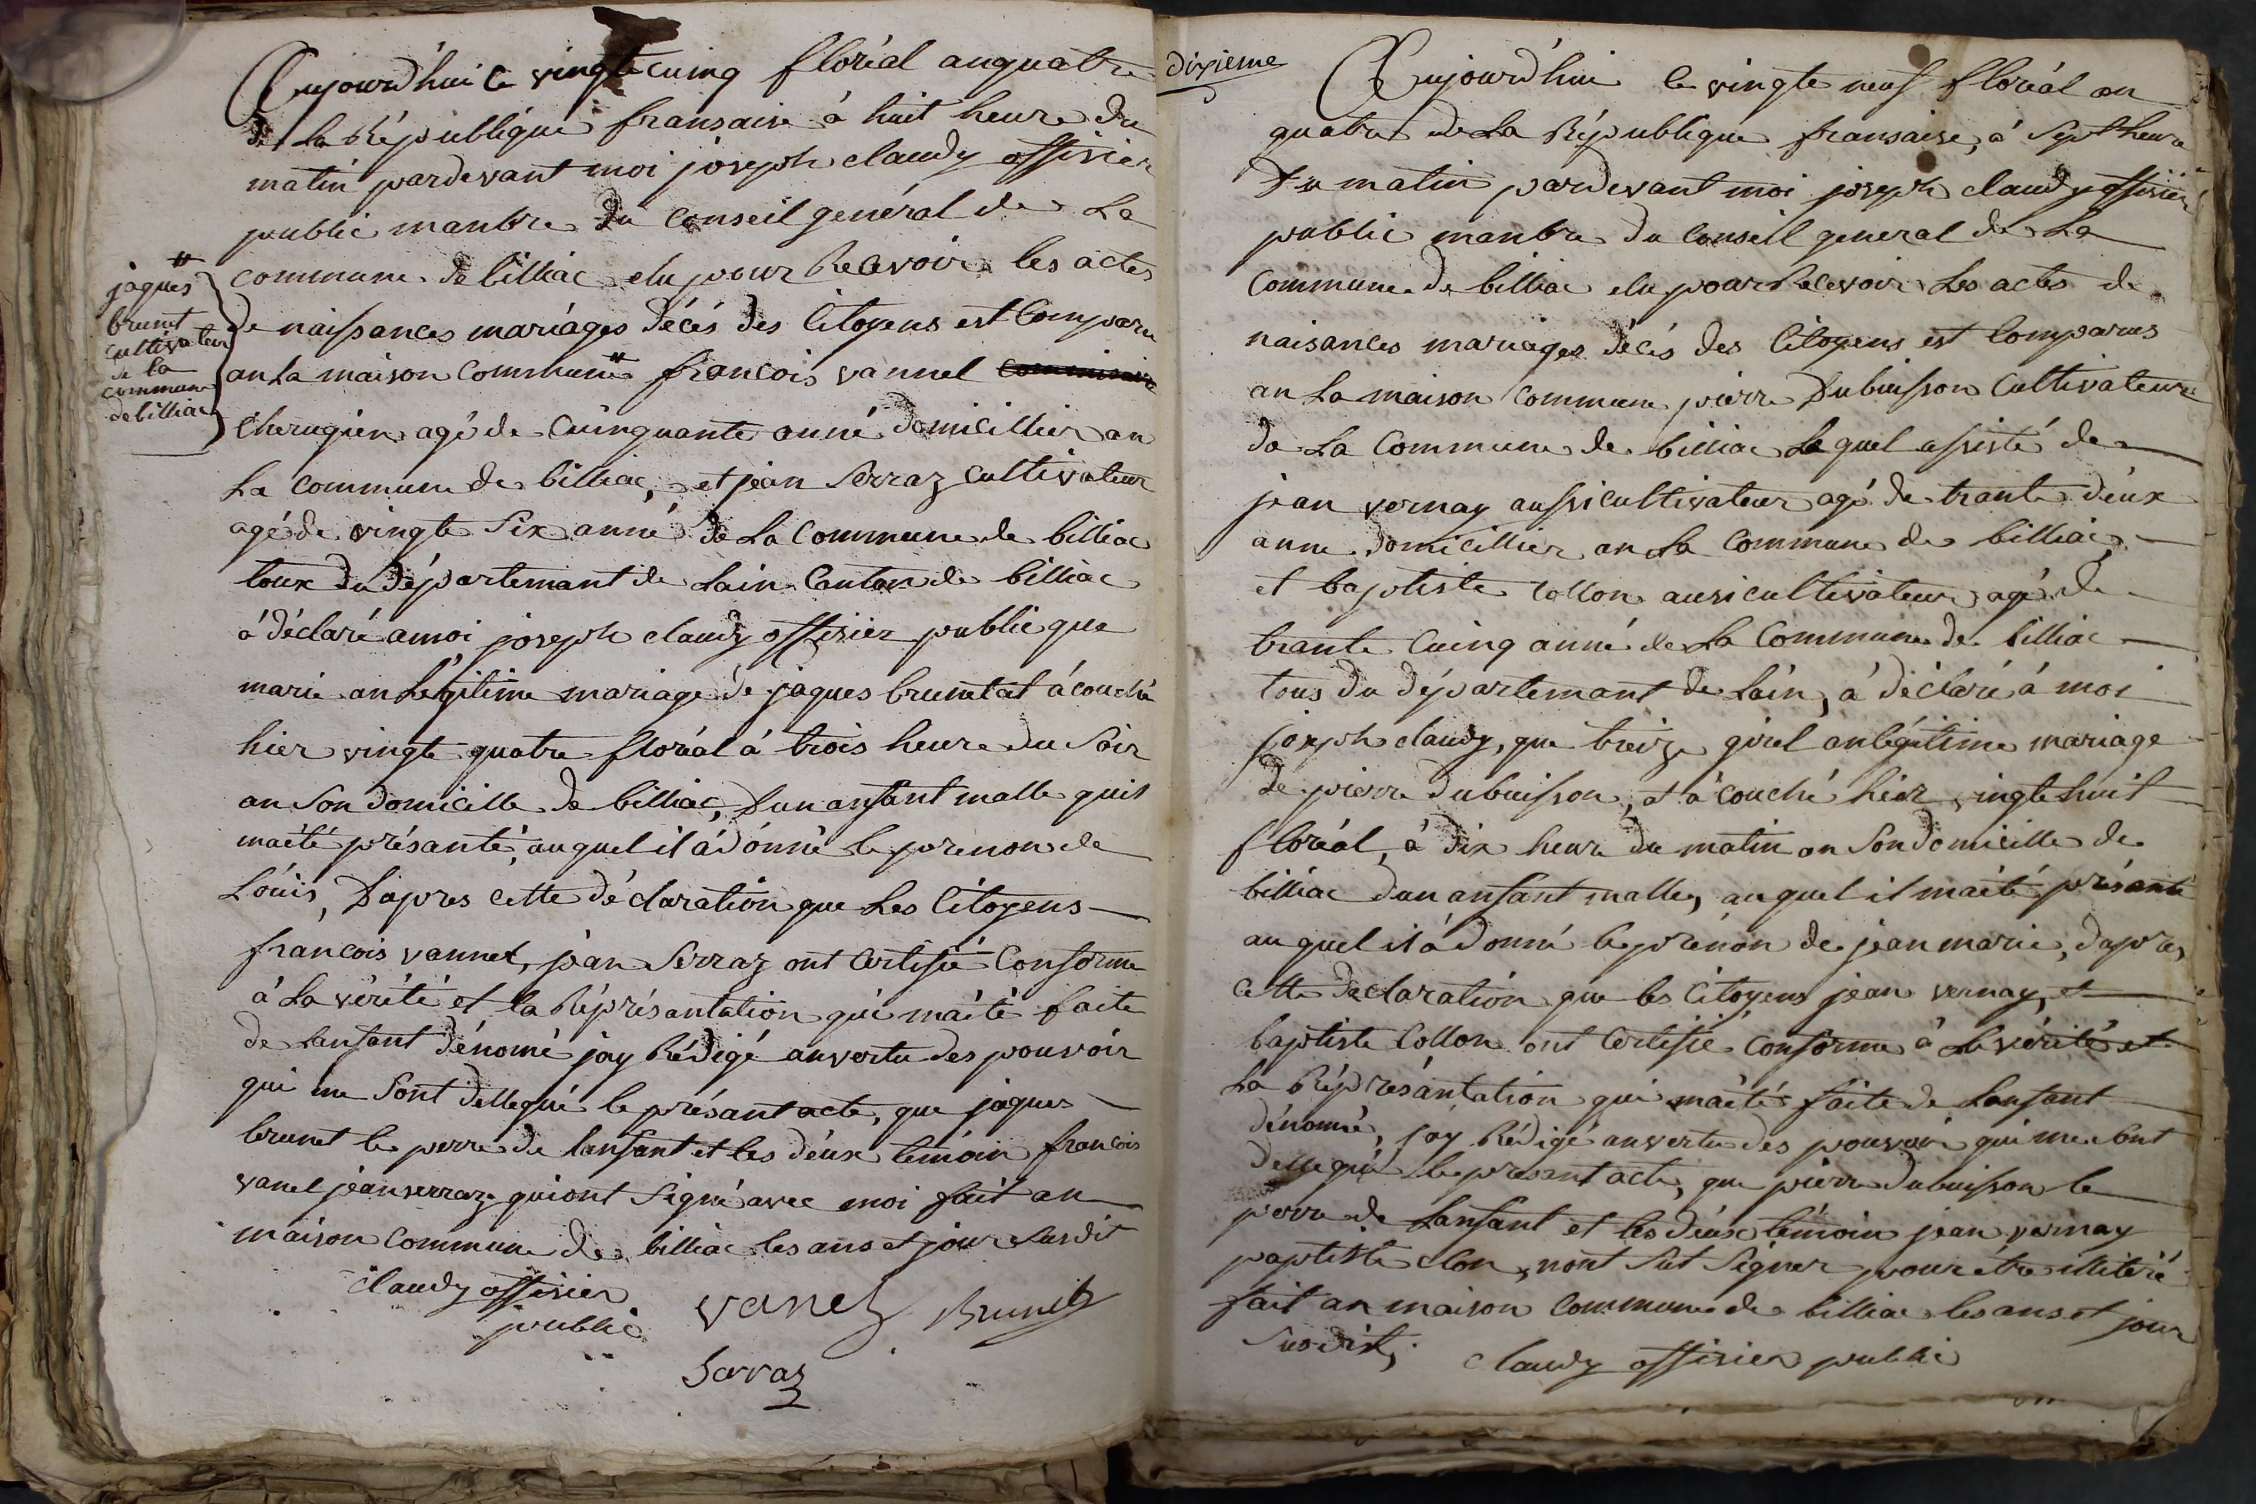 Aujourd'hui le vingte cuinq floréal anquatre
de La République fransaise à huit heure du
matin pardevant moi joseph claudy offisier
public manbre du Conseil général de La
commune de billiac elu pour Recevoir les actes
de naissances mariages décés des Citoyens est Comparu
an La maison Commune # francois vannel commisaire
cherugien agé de Cuinquante anné domicillier an
La commune de billiac, et jean Serraz cultivateur
agé de vingte Six anné de La Commune de billiac
toux du département de Lain Canton de billiac
à déclaré amoi joseph claudy offisier public que
marie an Légitime mariage de jaques brunet at àcouché
hier vingte quatre floréal à trois heure du Soir
an Son domicille de billiac, Dun anfant malle quil
maété présanté, auquel il àdonné le prenon de
Loüis, Dapres cette déclaration que Les Citoyens
francois vannel, jean Serraz ont Certifié Conforme
à La vérité et la Réprésantation qui màité faite
de Lanfant dénomé jay Rédigé anvertu des pouvoir
qui me Sont dellequé le présant acte, que jaques
brunet le perre de lanfant et les déux témoin francois
vanel jean serraz quiont Signé avec moi fait an
maison Commune de billiac les ans et jour Susdit
claudy offisier
public
vanel Brunet
Saraz
#
jaques
brunet
cultivateur
de la
commune
de billiac
dixieme
Aujourd'hui le vingte neuf floréal an
quatre de La République fransaise, à Sept heure
Du matin pardevant moi joseph claudy offisier
public manbre du Conseil general de La
Commune de billiac elu pour Recevoir Les actes de
naisances mariages décés des Citoyens est Comparus
an La maison Commune pierre Dubuisson Cultivateure
de La Commune de billiac Lequel assisté de
jean vernay aussi cultivateur agé de trante déux
anne domicillier an La Commune de billiac,
et baptiste Collon ausi cultivateur agé de
trante Cuinq anné de La Commune de billiac
tous du département de Lain, à déclaré à moi
joseph claudy, que treize girel anlégitime mariage
de pierre dubuisson, at àcouché hier vingte huit
floréal, à dix heure du matin an Son domicille de
billiac dun anfant malle, auquel il maété présanté
auquel il à donné le prénon de jean marie, dapres
cette declaration que les Citoyens jean vernay, et
baptiste Collon ont Certifié Conforme à La vérité et
La Réprésantation qui màeté faite de Lanfant
dénomé, jay Rédigé anvertu des pouvoir qui me Sont
dellequé le presant acte, que pierre dubuisson le
perre de Lanfant et les déux témoin jean vernay
paptiste clon, nont Sut Signer pour étre illiteré
fait an maison Commune de billiac les ans et jour
Susdit, claudy offisier public